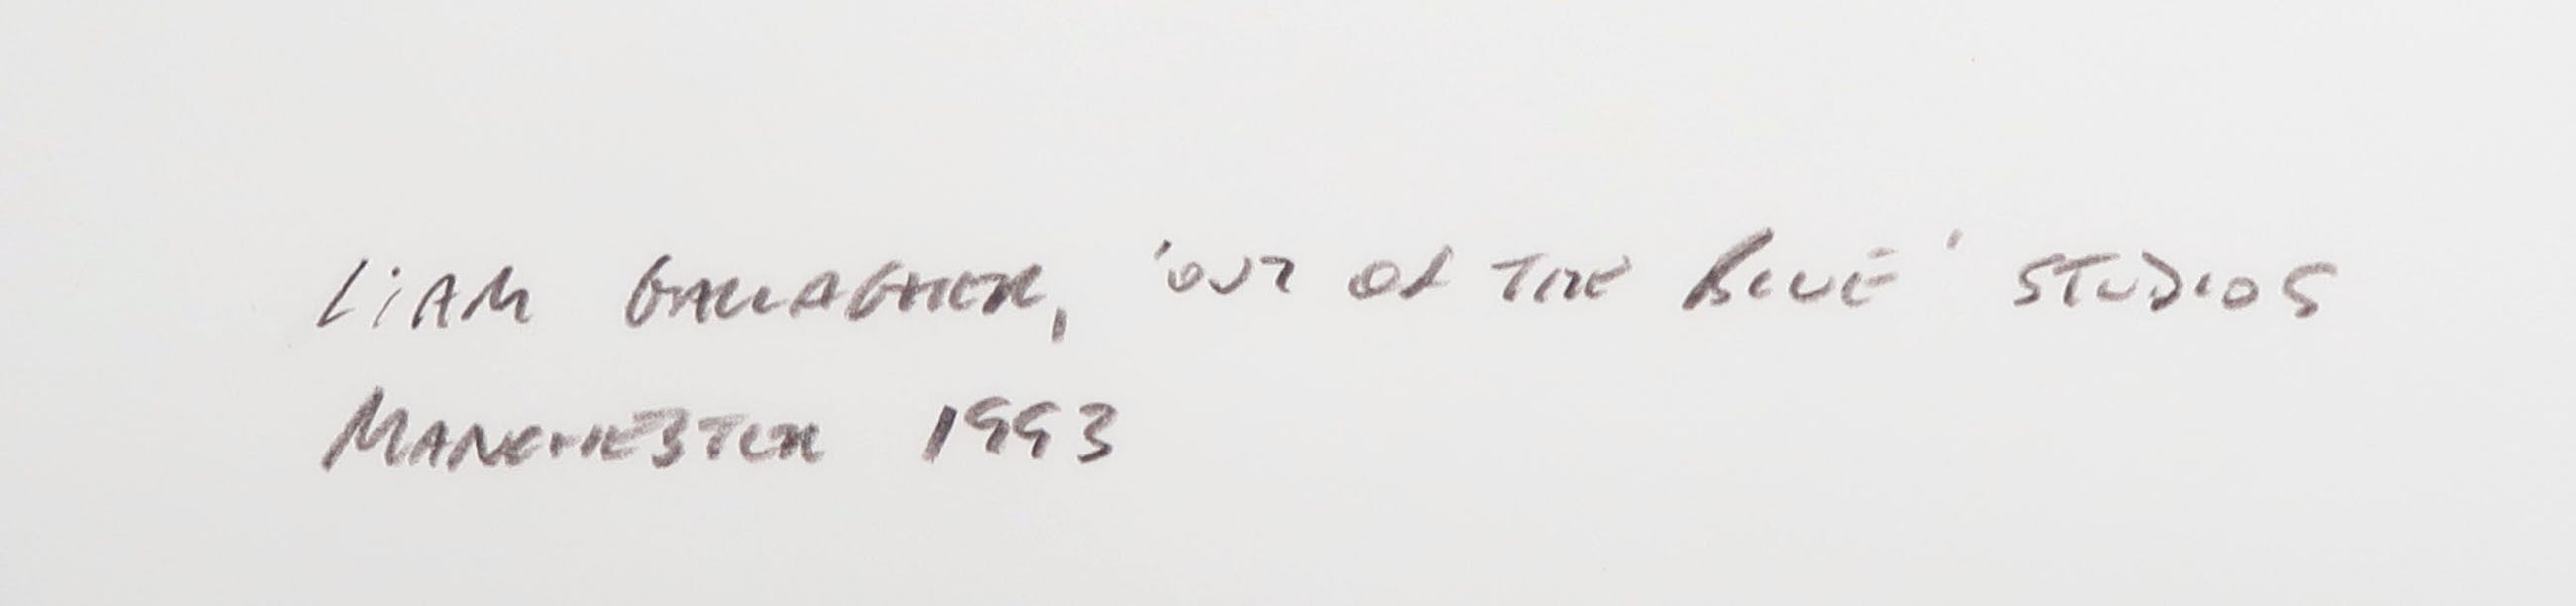 LiAM GALLAGHER, 'OUT OF THE BLUE' STUDIOS
MANCHESTER 1993